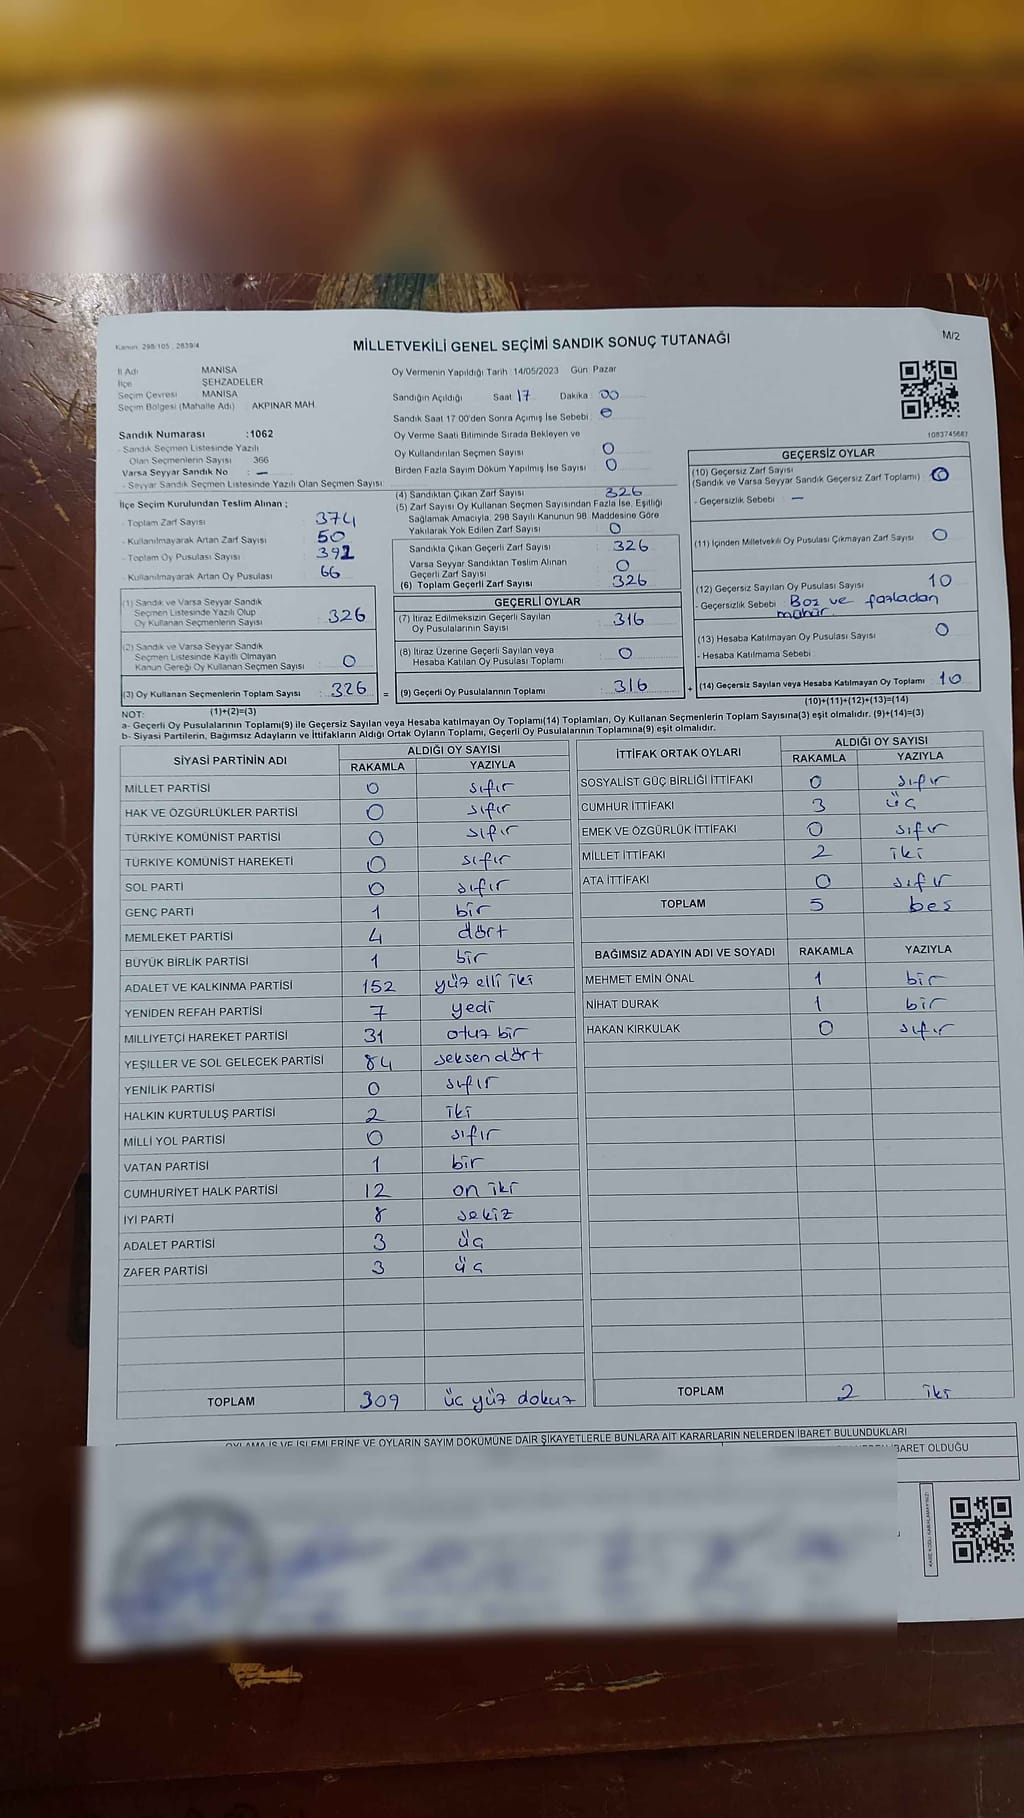 Kanun: 298/105 , 2839/4
MİLLETVEKİLİ GENEL SEÇİMİ SANDIK SONUÇ TUTANAĞI
M/2
İl Adı MANİSA
İlçe ŞEHZADELER
Seçim Çevresi MANİSA
Seçim Bölgesi (Mahalle Adı) : AKPINAR MAH
Sandık Numarası :1062
- Sandık Seçmen Listesinde Yazılı
Olan Seçmenlerin Sayısı 366
Varsa Seyyar Sandık No : —
- Seyyar Sandık Seçmen Listesinde Yazılı Olan Seçmen Sayısı
Oy Vermenin Yapıldığı Tarih :14/05/2023 Gün Pazar
Sandığın Açıldığı Saat 17 Dakika : 00
Sandık Saat 17.00'den Sonra Açımış İse Sebebi :
Oy Verme Saati Bitiminde Sırada Bekleyen ve
Oy Kullandırılan Seçmen Sayısı : 0
Birden Fazla Sayım Döküm Yapılmış İse Sayısı : 0
1083745687
İlçe Seçim Kurulundan Teslim Alınan ;
- Toplam Zarf Sayısı : 374
- Kullanılmayarak Artan Zarf Sayısı : 50
- Toplam Oy Pusulası Sayısı : 392
- Kullanılmayarak Artan Oy Pusulası : 66
(1) Sandık ve Varsa Seyyar Sandık
Seçmen Listesinde Yazılı Olup
Oy Kullanan Seçmenlerin Sayısı : 326
(2) Sandık ve Varsa Seyyar Sandık
Seçmen Listesinde Kayıtlı Olmayan
Kanun Gereği Oy Kullanan Seçmen Sayısı : 0
(3) Oy Kullanan Seçmenlerin Toplam Sayısı : 326 =
(1)+(2)=(3)
(4) Sandıktan Çıkan Zarf Sayısı : 326
(5) Zarf Sayısı Oy Kullanan Seçmen Sayısından Fazla İse, Eşitliği
Sağlamak Amacıyla, 298 Sayılı Kanunun 98. Maddesine Göre
Yakılarak Yok Edilen Zarf Sayısı : 0
Sandıkta Çıkan Geçerli Zarf Sayısı : 326
Varsa Seyyar Sandıktan Teslim Alınan
Geçerli Zarf Sayısı : 0
(6) Toplam Geçerli Zarf Sayısı : 326
GEÇERLİ OYLAR
(7) İtiraz Edilmeksizin Geçerli Sayılan
Oy Pusulalarının Sayısı : 316
(8) İtiraz Üzerine Geçerli Sayılan veya
Hesaba Katılan Oy Pusulası Toplamı : 0
(9) Geçerli Oy Pusulalarının Toplamı : 316 +
GEÇERSİZ OYLAR
(10) Geçersiz Zarf Sayısı
(Sandık ve Varsa Seyyar Sandık Geçersiz Zarf Toplamı) : 0
- Geçersizlik Sebebi : —
(11) İçinden Milletvekili Oy Pusulası Çıkmayan Zarf Sayısı : 0
(12) Geçersiz Sayılan Oy Pusulası Sayısı : 10
- Geçersizlik Sebebi : Boz ve fazladan
mühür
(13) Hesaba Katılmayan Oy Pusulası Sayısı : 0
- Hesaba Katılmama Sebebi :
(14) Geçersiz Sayılan veya Hesaba Katılmayan Oy Toplamı : 10
(10)+(11)+(12)+(13)=(14)
NOT:
a- Geçerli Oy Pusulalarının Toplamı(9) ile Geçersiz Sayılan veya Hesaba katılmayan Oy Toplamı(14) Toplamları, Oy Kullanan Seçmenlerin Toplam Sayısına(3) eşit olmalıdır. (9)+(14)=(3)
b- Siyasi Partilerin, Bağımsız Adayların ve İttifakların Aldığı Ortak Oyların Toplamı, Geçerli Oy Pusulalarının Toplamına(9) eşit olmalıdır.
SİYASİ PARTİNİN ADI ALDIĞI OY SAYISI
RAKAMLA YAZIYLA
MİLLET PARTİSİ 0 sıfır
HAK VE ÖZGÜRLÜKLER PARTİSİ 0 sıfır
TÜRKİYE KOMÜNİST PARTİSİ 0 sıfır
TÜRKİYE KOMÜNİST HAREKETİ 0 sıfır
SOL PARTİ 0 sıfır
GENÇ PARTİ 1 bir
MEMLEKET PARTİSİ 4 dört
BÜYÜK BİRLİK PARTİSİ 1 bir
ADALET VE KALKINMA PARTİSİ 152 yüz elli iki
YENİDEN REFAH PARTİSİ 7 yedi
MİLLİYETÇİ HAREKET PARTİSİ 31 otuz bir
YEŞİLLER VE SOL GELECEK PARTİSİ 84 seksen dört
YENİLİK PARTİSİ 0 sıfır
HALKIN KURTULUŞ PARTİSİ 2 iki
MİLLİ YOL PARTİSİ 0 sıfır
VATAN PARTİSİ 1 bir
CUMHURİYET HALK PARTİSİ 12 on iki
İYİ PARTİ 8 sekiz
ADALET PARTİSİ 3 üç
ZAFER PARTİSİ 3 üç
TOPLAM 309 üç yüz dokuz
İTTİFAK ORTAK OYLARI ALDIĞI OY SAYISI
RAKAMLA YAZIYLA
SOSYALİST GÜÇ BİRLİĞİ İTTİFAKI 0 sıfır
CUMHUR İTTİFAKI 3 üç
EMEK VE ÖZGÜRLÜK İTTİFAKI 0 sıfır
MİLLET İTTİFAKI 2 iki
ATA İTTİFAKI 0 sıfır
TOPLAM 5 beş
BAĞIMSIZ ADAYIN ADI VE SOYADI RAKAMLA YAZIYLA
MEHMET EMİN ÖNAL 1 bir
NİHAT DURAK 1 bir
HAKAN KIRKULAK 0 sıfır
TOPLAM 2 iki
OYLAMA İŞ VE İŞLEMLERİNE VE OYLARIN SAYIM DÖKÜMÜNE DAİR ŞİKAYETLERLE BUNLARA AİT KARARLARIN NELERDEN İBARET BULUNDUKLARI
İBARET OLDUĞU